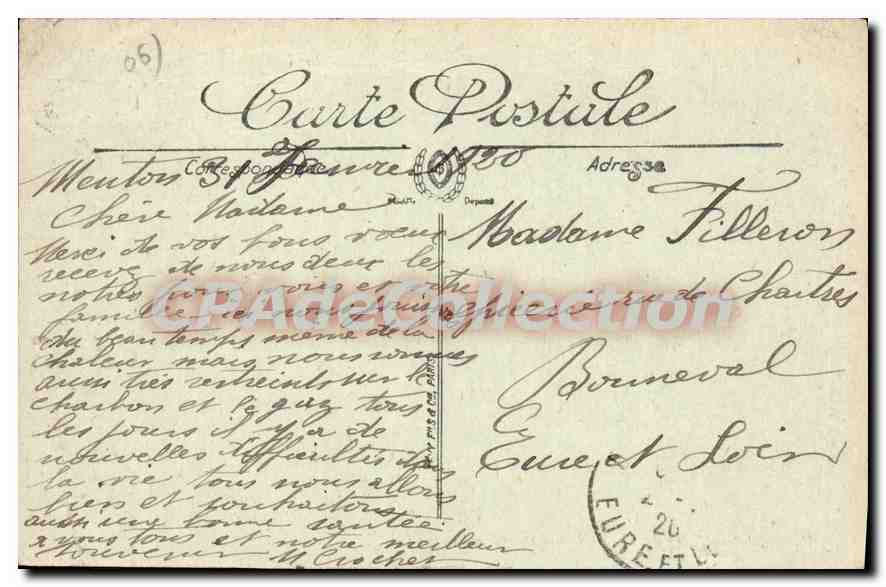 06)
Carte Postale
Correspondance
Adresse
Menton 31 Janvier 1920
Chère Madame
Merci de vos bons voeux
recevez de nous deux les
notres pour vous et votre
famille ici nous
du beau temps même de la
chaleur mais nous sommes
aussi très restreints sur le
charbon et le gaz tous
les jours il y a de
nouvelles difficultés dans
la vie tous nous allons
bien et souhaitons
aussi une bonne santée
a vous tous et notre meilleur
souvenir M Crochet
Madame Filleron
épicerie rue de Chartres
Bonneval
Eure et Loir
CPADeCollection.com
FILS & Cie, PARIS
20
EURE ET L